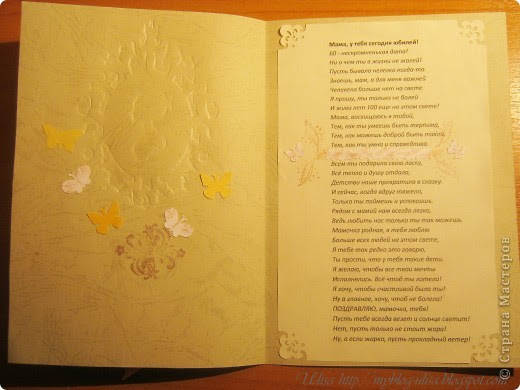 Мама, у тебя сегодня юбилей!
60 - нескромненькая дата!
Ни о чем ты в жизни не жалей!
Пусть бывало нелегко когда-то.
Знаешь, мам, а для меня важней
Человека больше нет на свете
Я прошу, ты только не болей
И живи лет 100 еще на этом свете!
Мама, восхищаюсь я тобой,
Тем, как ты умеешь быть терпима,
Тем, как можешь доброй быть такой,
Тем, как ты умна и справедлива.
Всем ты подарила свою ласку,
Всё тепло и душу отдала,
Детство наше превратила в сказку.
И сейчас, когда вдруг тяжело,
Только ты поймешь и успокоишь.
Рядом с мамой нам всегда легко,
Ведь любить нас только ты так можешь.
Мамочка родная, я тебя люблю
Больше всех людей на этом свете,
Я тебе так редко это говорю,
Ты прости, что у тебя такие дети.
Я желаю, чтобы все твои мечты
Исполнялись. Всё чтоб ты хотела!
Я хочу, чтобы счастливой была ты!
Ну а главное, хочу, чтоб не болела!
ПОЗДРАВЛЯЮ, мамочка, тебя!
Пусть тебе всегда везет и солнце светит!
Нет, пусть только не стоит жара!
Ну, а если жарко, пусть прохладный ветер!
© Страна Мастеров